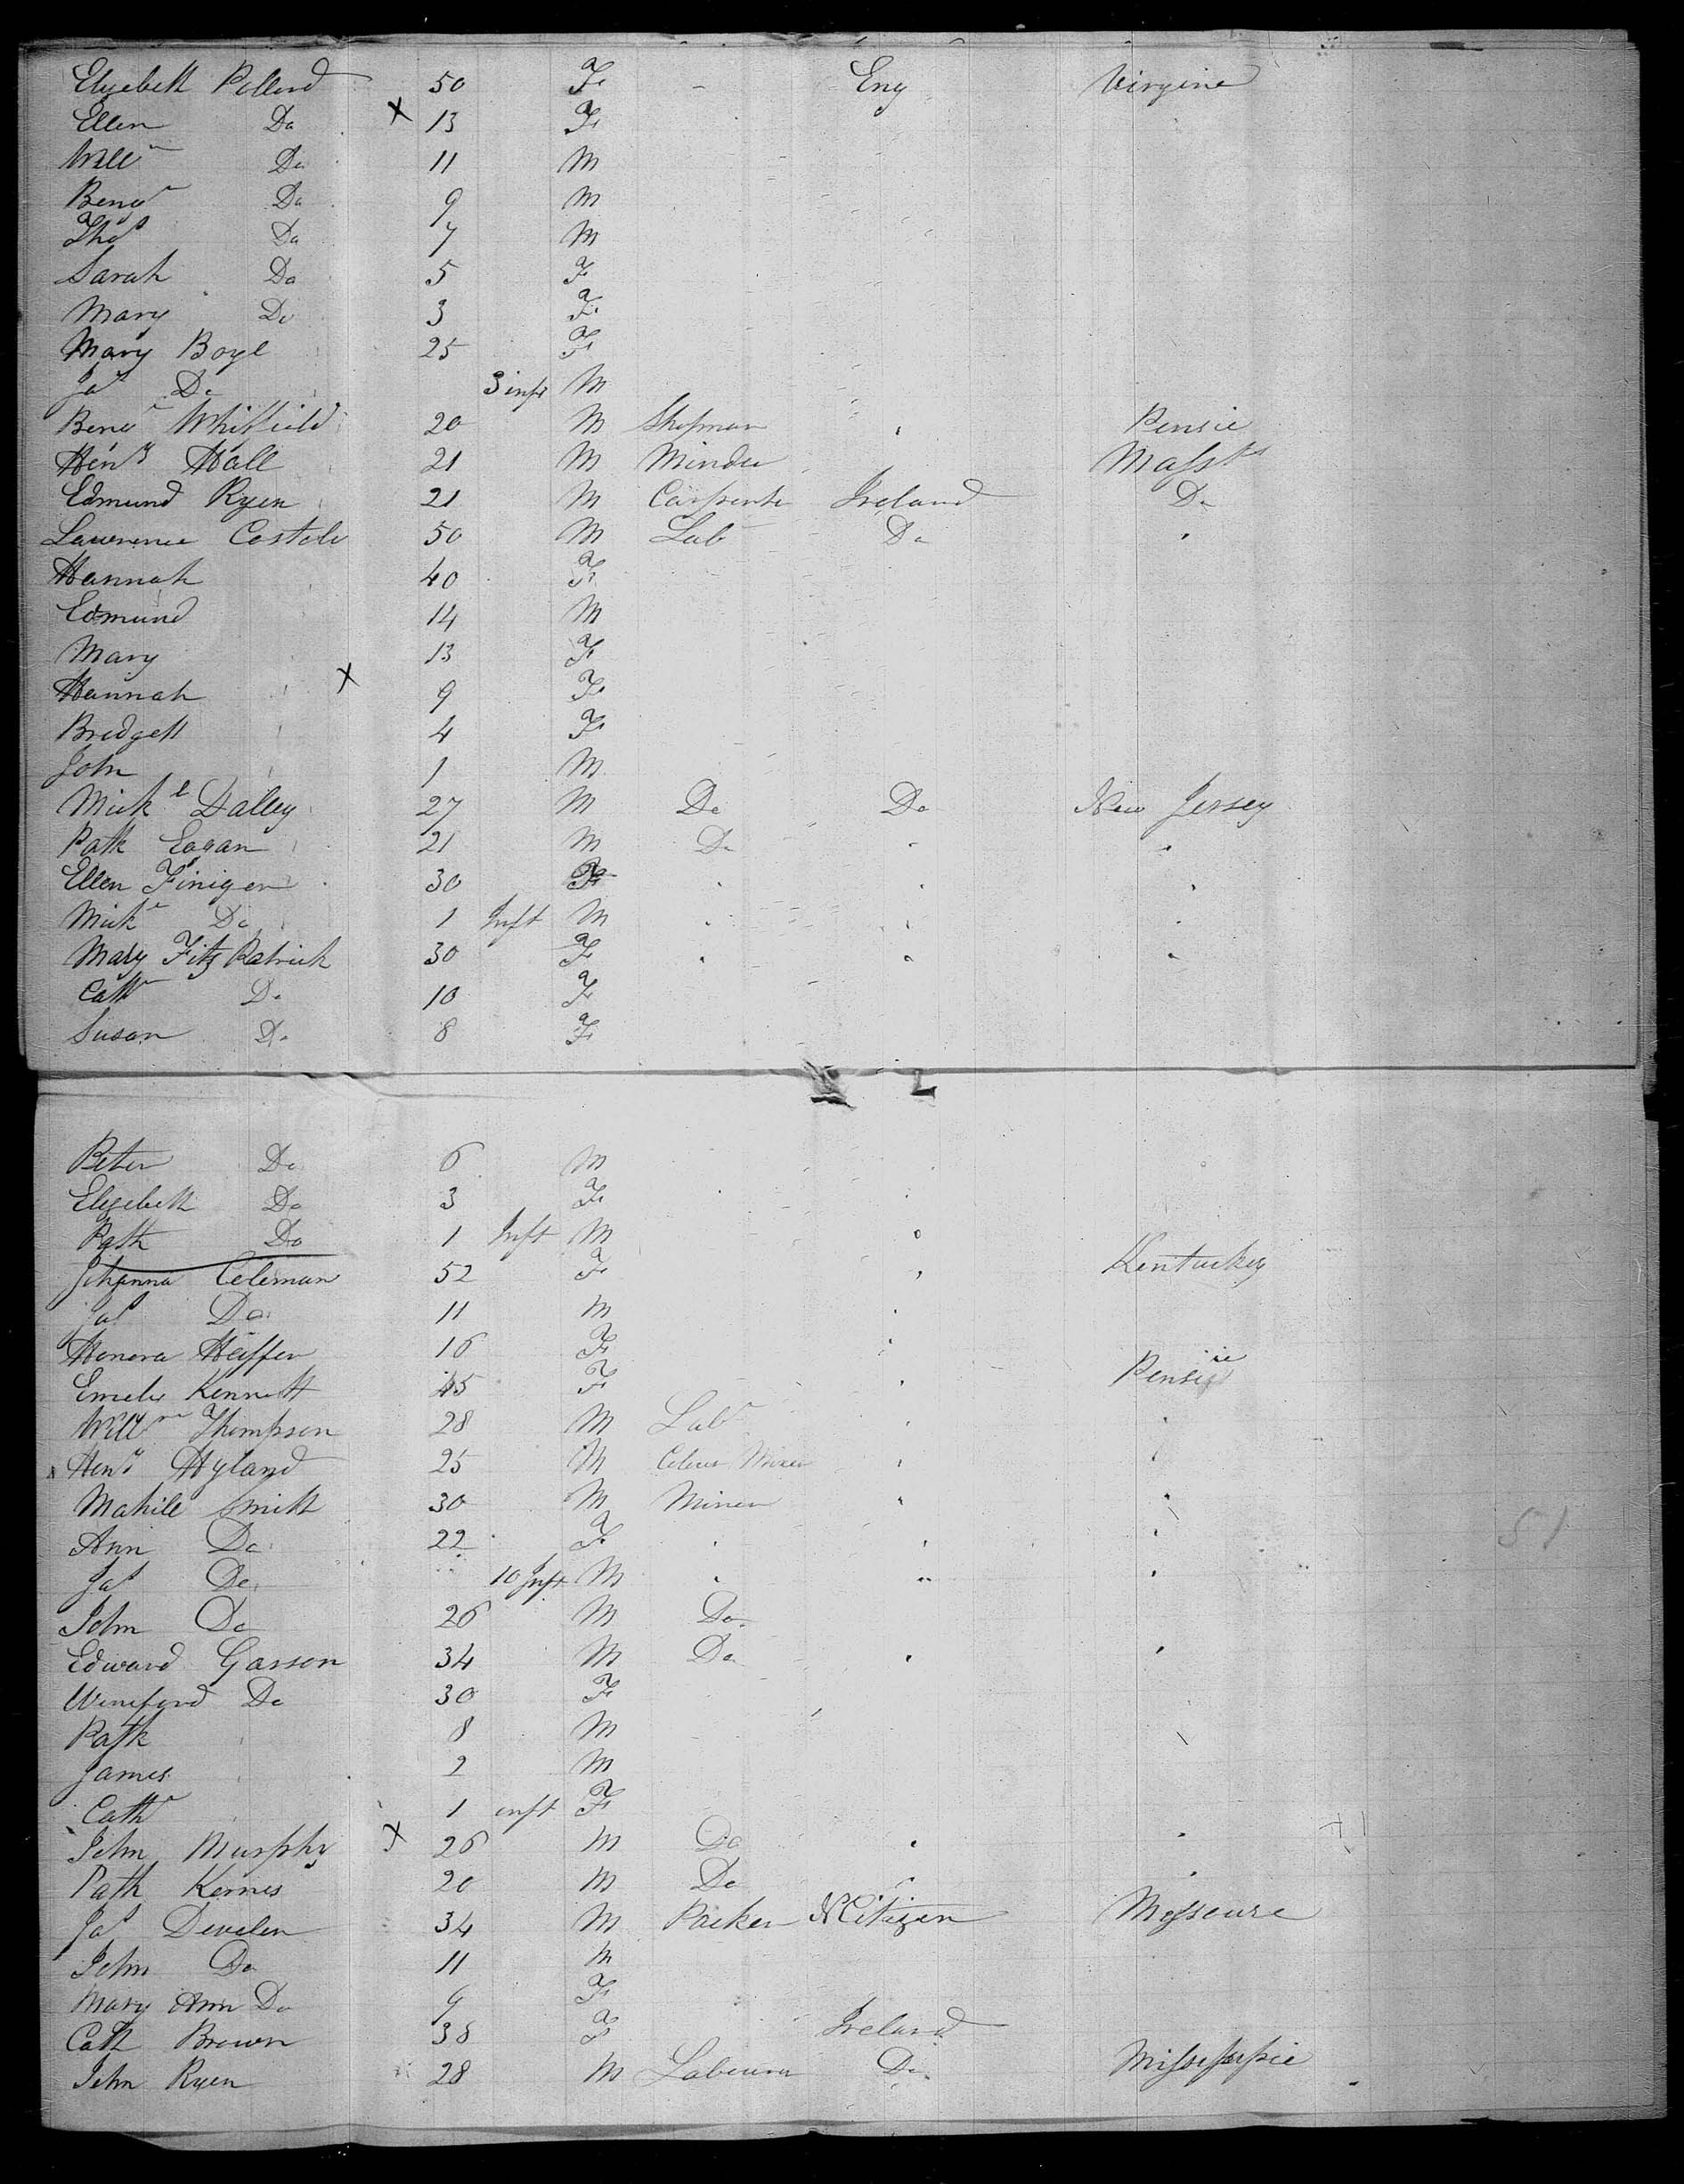 Elizebeth Pollard 50 F - Eng Virginie
Ellen Do X 13 F
Willm Do 11 M
Benjn Do 9 M
Thos Do 7 M
Sarah Do 5 F
Mary Do 3 F
Mary Boyl 25 F
Jas Do 3 inft M
Benjn Whitfield 20 M Shopman Pensie
Heny Hall 21 M Minder Massts
Edmund Ryen 21 M Carpente Ireland Do
Lawrence Costolo 50 M Labr Do
Hannah 40 F
Edmund 14 M
Mary 13 F
Hannah X 9 F
Bredgett 4 F
John 1 M
Mickl Dalley 27 M Do Do New Jersey
Patk Eagan 21 M Do
Ellen Finigen 30 F
Mickl Do 1 Inft M
Mary Fitz Patrick 30 F
Cathe Do 10 F
Susan Do 8 F
Peter Do 6 M
Elizebeth Do 3 F
Patk Do 1 Inft M
Johanna Coleman 52 F Kentuckey
Jas Do 11 M
Honora Heffer 16 F
Emely Kennett 45 F Pensie
Willm Thompson 28 M Labr
Heny Hyland 25 M Colour Mixer
Mahile Smith 30 M Miner
Ann Do 22 F
Jas Do 10 Inft M
John Do 26 M Do
Edward Gasson 34 M Do
Wineford Do 30 F
Patk 8 M
James 2 M
Cathe 1 inft F
John Murphy X 26 M Do
Patk Kernes 20 M Do
Jas Develen 34 M Packer N Citizen Messeure
John Do 11 M
Mary Ann Do 9 F
Cath Brown 38 F Ireland
John Ryen 28 M Labourer Do Missesepie
51